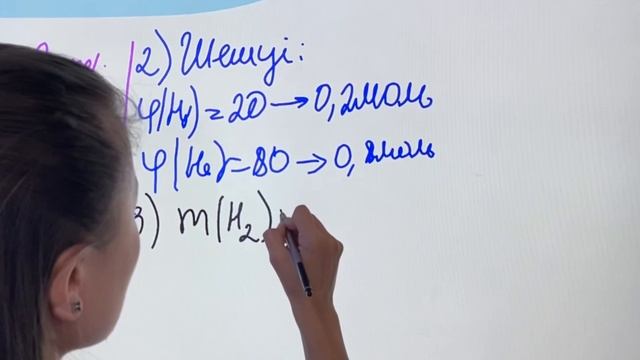 2) Шешуі:
φ(H₂)=20→0,2моль
φ(He)=80→0,8моль
3) m(H₂)